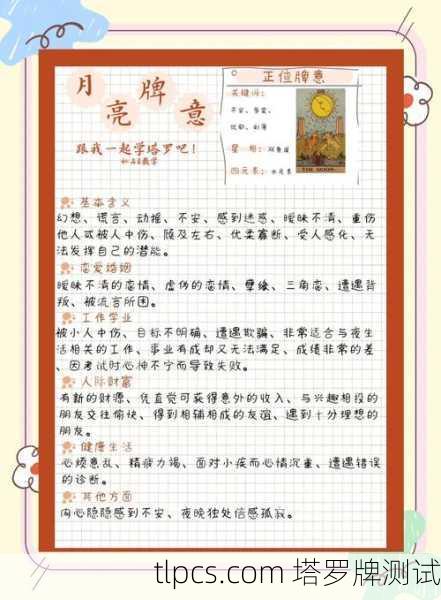 月亮牌意
跟我一起学塔罗吧！
正位牌意
关键词：
不安、
星 相：双鱼座
四元素：水元素
THE MOON
基本含义
幻想、谎言、动摇、不安、感到迷惑、暧昧不清、重伤
他人或被人中伤、随及左右、优柔寡断、受人感化、无
法发挥自己的潜能。
恋爱婚姻
暧昧不清的恋情、虚伪的恋情、孽缘、三角恋、遭遇背
叛、被流言所困。
工作学业
被小人中伤、目标不明确、遭遇欺骗、非常适合与夜生
活相关的工作、事业有成却又无法满足、成绩非常的差
、因考试时心神不宁而导致失败。
人际财富
有新的财源、凭直觉可获得意外的收入、与兴趣相投的
朋友交往愉快、得到相辅相成的友谊、遇到十分理想的
朋友。
健康生活
心烦意乱、精疲力竭、面对小疾而心情沉重、遭遇错误
的诊断。
其他方面
内心隐隐感到不安、夜晚独处倍感孤寂。
tlpcs.com 塔罗牌测试